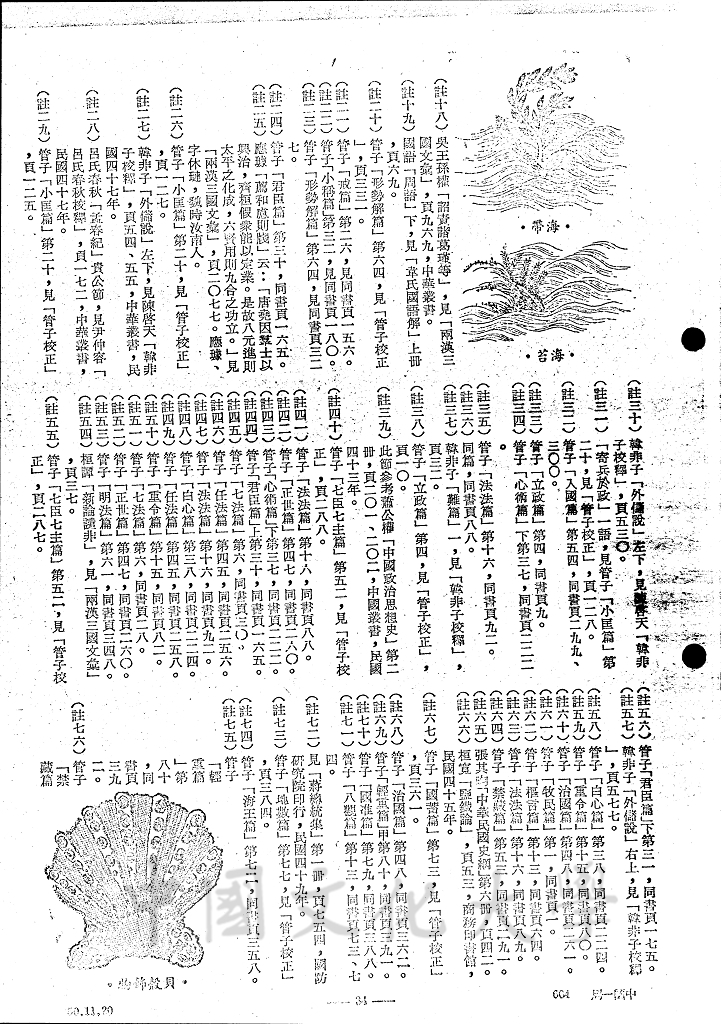 (註十八) 吳王孫權「詔責諸葛瑾等」,見「兩漢三
國文彙」,頁九六九,中華叢書。
(註十九) 國語「周語」下,見「韋氏國語解」上冊
,頁六九。
(註二十) 管子「形勢解篇」第六四,見「管子校正
」,頁三三一。
(註二一) 管子「戒篇」第二六,見同書頁一五六。
(註二二) 管子「小稱篇」第三二,見同書頁一八〇。
(註二三) 管子「形勢解篇」第六四,見同書頁三二
七。
(註二四) 管子「君臣篇」第三十,同書頁一六五。
(註二五) 應璩「薦和慮則牋」云:「唐堯因羣士以
興治,齊桓假衆能以定業。是故八元進則
太平之化成,六賢用則九合之功立。」見
「兩漢三國文彙」,頁二〇七七。應璩、
字休璉,魏時汝南人。
(註二六) 管子「小匡篇」第二十,見「管子校正」
,頁一二七。
(註二七) 韓非子「外儲說」左下,見陳啓天「韓非
子校釋」,頁五四、五五,中華叢書,民
國四十七年。
(註二八) 呂氏春秋「孟春紀」貴公節,見尹仲容「
呂氏春秋校釋」,頁一七二,中華叢書,
民國四十七年。
(註二九) 管子「小匡篇」第二十,見「管子校正」
,頁一二五。
·海帶·
·海苔·
(註三十) 韓非子「外儲說」左下,見陳啓天「韓非
子校釋」,頁五三〇。
(註三一) 「寄兵於政」一語,見管子「小匡篇」第
二十,見「管子校正」,頁一二八。
(註三二) 管子「入國篇」第五四,同書頁二九九、
三〇〇。
(註三三) 管子「立政篇」第四,同書頁九。
(註三四) 管子「心術篇」下第三七,同書頁二二二
。
(註三五) 管子「法法篇」第十六,同書頁九二。
(註三六) 同篇,同書頁八八。
(註三七) 韓非子「難篇」一,見「韓非子校釋」,
頁三二一。
(註三八) 管子「立政篇」第四,見「管子校正」,
頁一〇。
(註三九) 此節參考蕭公權「中國政治思想史」第二
冊,頁二〇一、二〇二,中國叢書,民國
四十三年。
(註四十) 管子「七臣七主篇」第五二,見「管子校
正」,頁二八八。
(註四一) 管子「法法篇」第十六,同書頁八八。
(註四二) 管子「正世篇」第四七,同書頁二六〇。
(註四三) 管子「心術篇」下第三七,同書頁二二二。
(註四四) 管子「君臣篇」上第三十,同書頁一六五。
(註四五) 管子「七法篇」第六,同書頁三〇。
(註四六) 管子「任法篇」第四五,同書頁二五六。
(註四七) 管子「法法篇」第十六,同書頁九二。
(註四八) 管子「白心篇」第三八,同書頁二二四。
(註四九) 管子「任法篇」第四五,同書頁二五八。
(註五十) 管子「重令篇」第十五,同書頁八二。
(註五一) 管子「七法篇」第六,同書頁二八。
(註五二) 管子「正世篇」第四七,同書頁二六〇。
(註五三) 管子「明法篇」第六一,同書頁三四八。
(註五四) 桓譚「新論譴非」,見「兩漢三國文彙」
,頁三七。
(註五五) 管子「七臣七主篇」第五二,見「管子校
正」,頁二八七。
(註五六) 管子「君臣篇」下第三一,同書頁一七五。
(註五七) 韓非子「外儲說」右上,見「韓非子校釋
」,頁五七七。
(註五八) 管子「白心篇」第三八,同書頁二二四。
(註五九) 管子「重令篇」第十五,同書頁八〇。
(註六十) 管子「治國篇」第四八,同書頁二六一。
(註六一) 管子「牧民篇」第一,同書頁一。
(註六二) 管子「樞言篇」第十三,同書頁六四。
(註六三) 管子「法法篇」第十六,同書頁八九。
(註六四) 管子「禁藏篇」第五三,同書頁二九一。
(註六五) 張其昀「中華民國史綱」第六冊,頁四二。
(註六六) 桓寬「鹽鐵論」,頁五三,商務印書館,
民國四十五年。
(註六七) 管子「國蓄篇」第七三,見「管子校正」
,頁三六一。
(註六八) 管子「治國篇」第四八,同書頁三六二。
(註六九) 管子「輕重篇」甲第八十,同書頁三九一。
(註七十) 管子「國准篇」第七九,同書頁三八八。
(註七一) 管子「八觀篇」第十三,同書頁七三、七
四。
(註七二) 見「蔣總統集」第一冊,頁七五四,國防
研究院印行,民國四十九年。
(註七三) 管子「地數篇」第七七,見「管子校正」
,頁三八四。
(註七四) 管子「海王篇」第七二,同書頁三五八。
(註七五) 管子
「輕
重篇
」第
八十
,同
書頁
三九
二。
(註七六) 管子
「禁
藏篇
·貝殼飾物·
中舊一周 664
— 34 —
50.11.20
中國文化大學